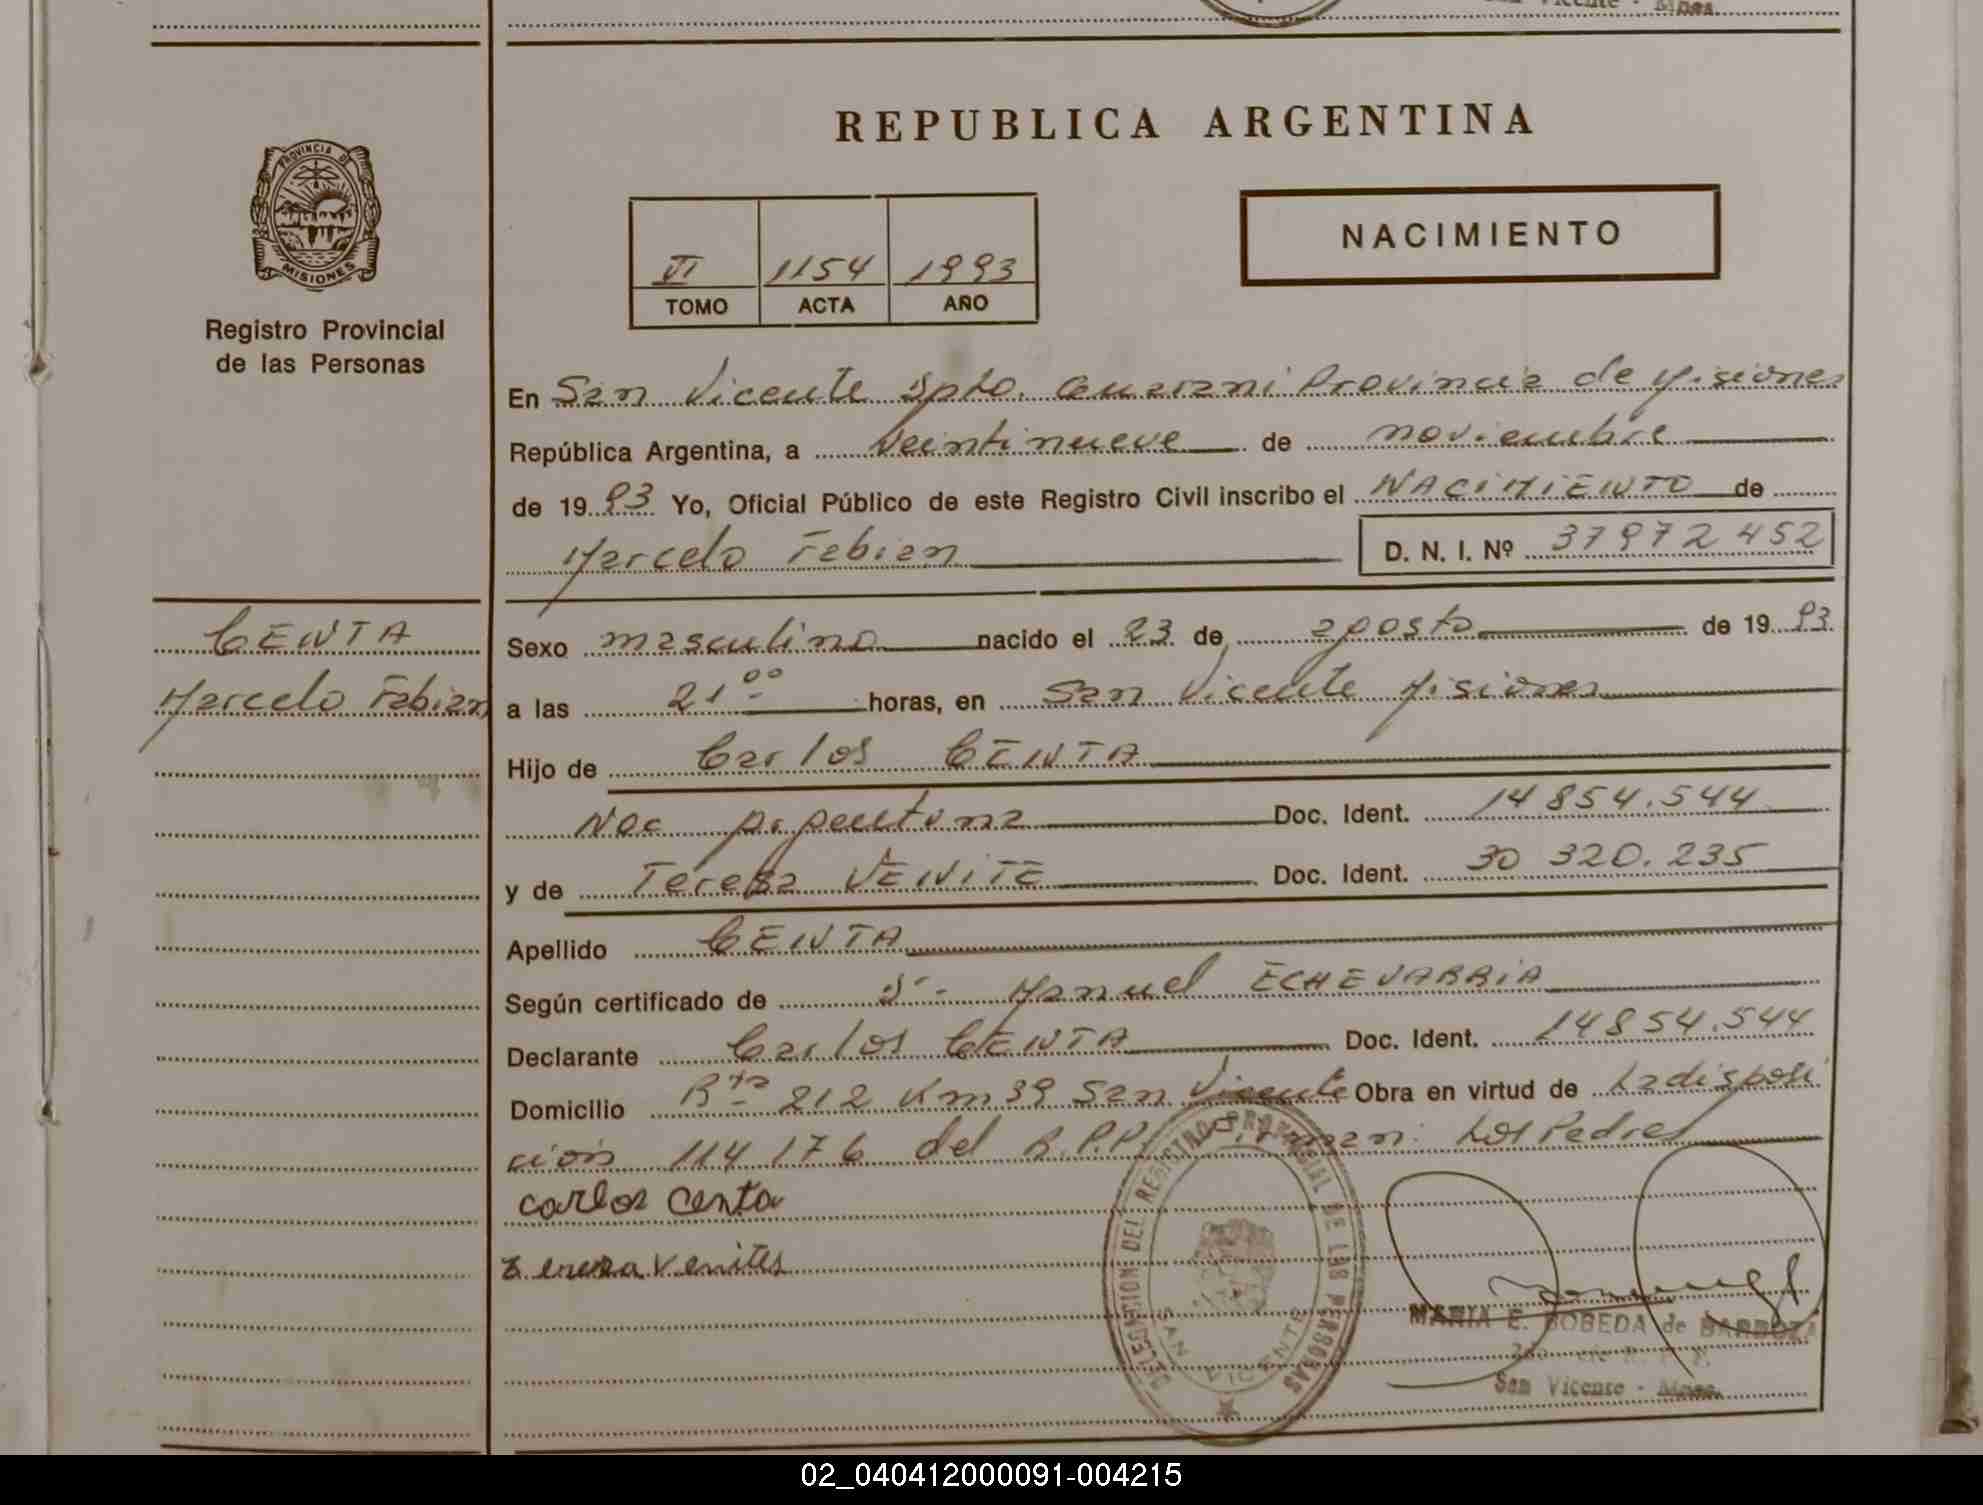 San Vicente - Mnes.
REPUBLICA ARGENTINA
PROVINCIA DE
MISIONES
Registro Provincial
de las Personas
VI 1154 1993
TOMO ACTA AÑO
NACIMIENTO
En San Vicente Dpto. Guarani Provincia de Misiones
República Argentina, a veintinueve de noviembre
de 19 93 Yo, Oficial Público de este Registro Civil inscribo el NACIMIENTO de
Marcelo Fabian D. N. I. Nº 37972452
CENTA
Marcelo Fabian
Sexo masculino nacido el 23 de agosto de 19 93
a las 21 00 horas, en San Vicente Misiones
Hijo de Carlos CENTA
Nac Argentina Doc. Ident. 14854.544
y de Teresa VENITE Doc. Ident. 30 320.235
Apellido CENTA
Según certificado de Manuel ECHEVARRIA
Declarante Carlos CENTA Doc. Ident. 14854.544
Domicilio Rta 212 Km 39 San Vicente Obra en virtud de La disposi
ción 114 176 del R.P.P. Firman: Los Padres
carlos Centa
tereza venites
DELEGACION DEL REGISTRO PROVINCIAL DE LAS PERSONAS
SAN VICENTE
MARIA E. BOBEDA de BARBOZA
San Vicente - Mnes.
02_040412000091-004215